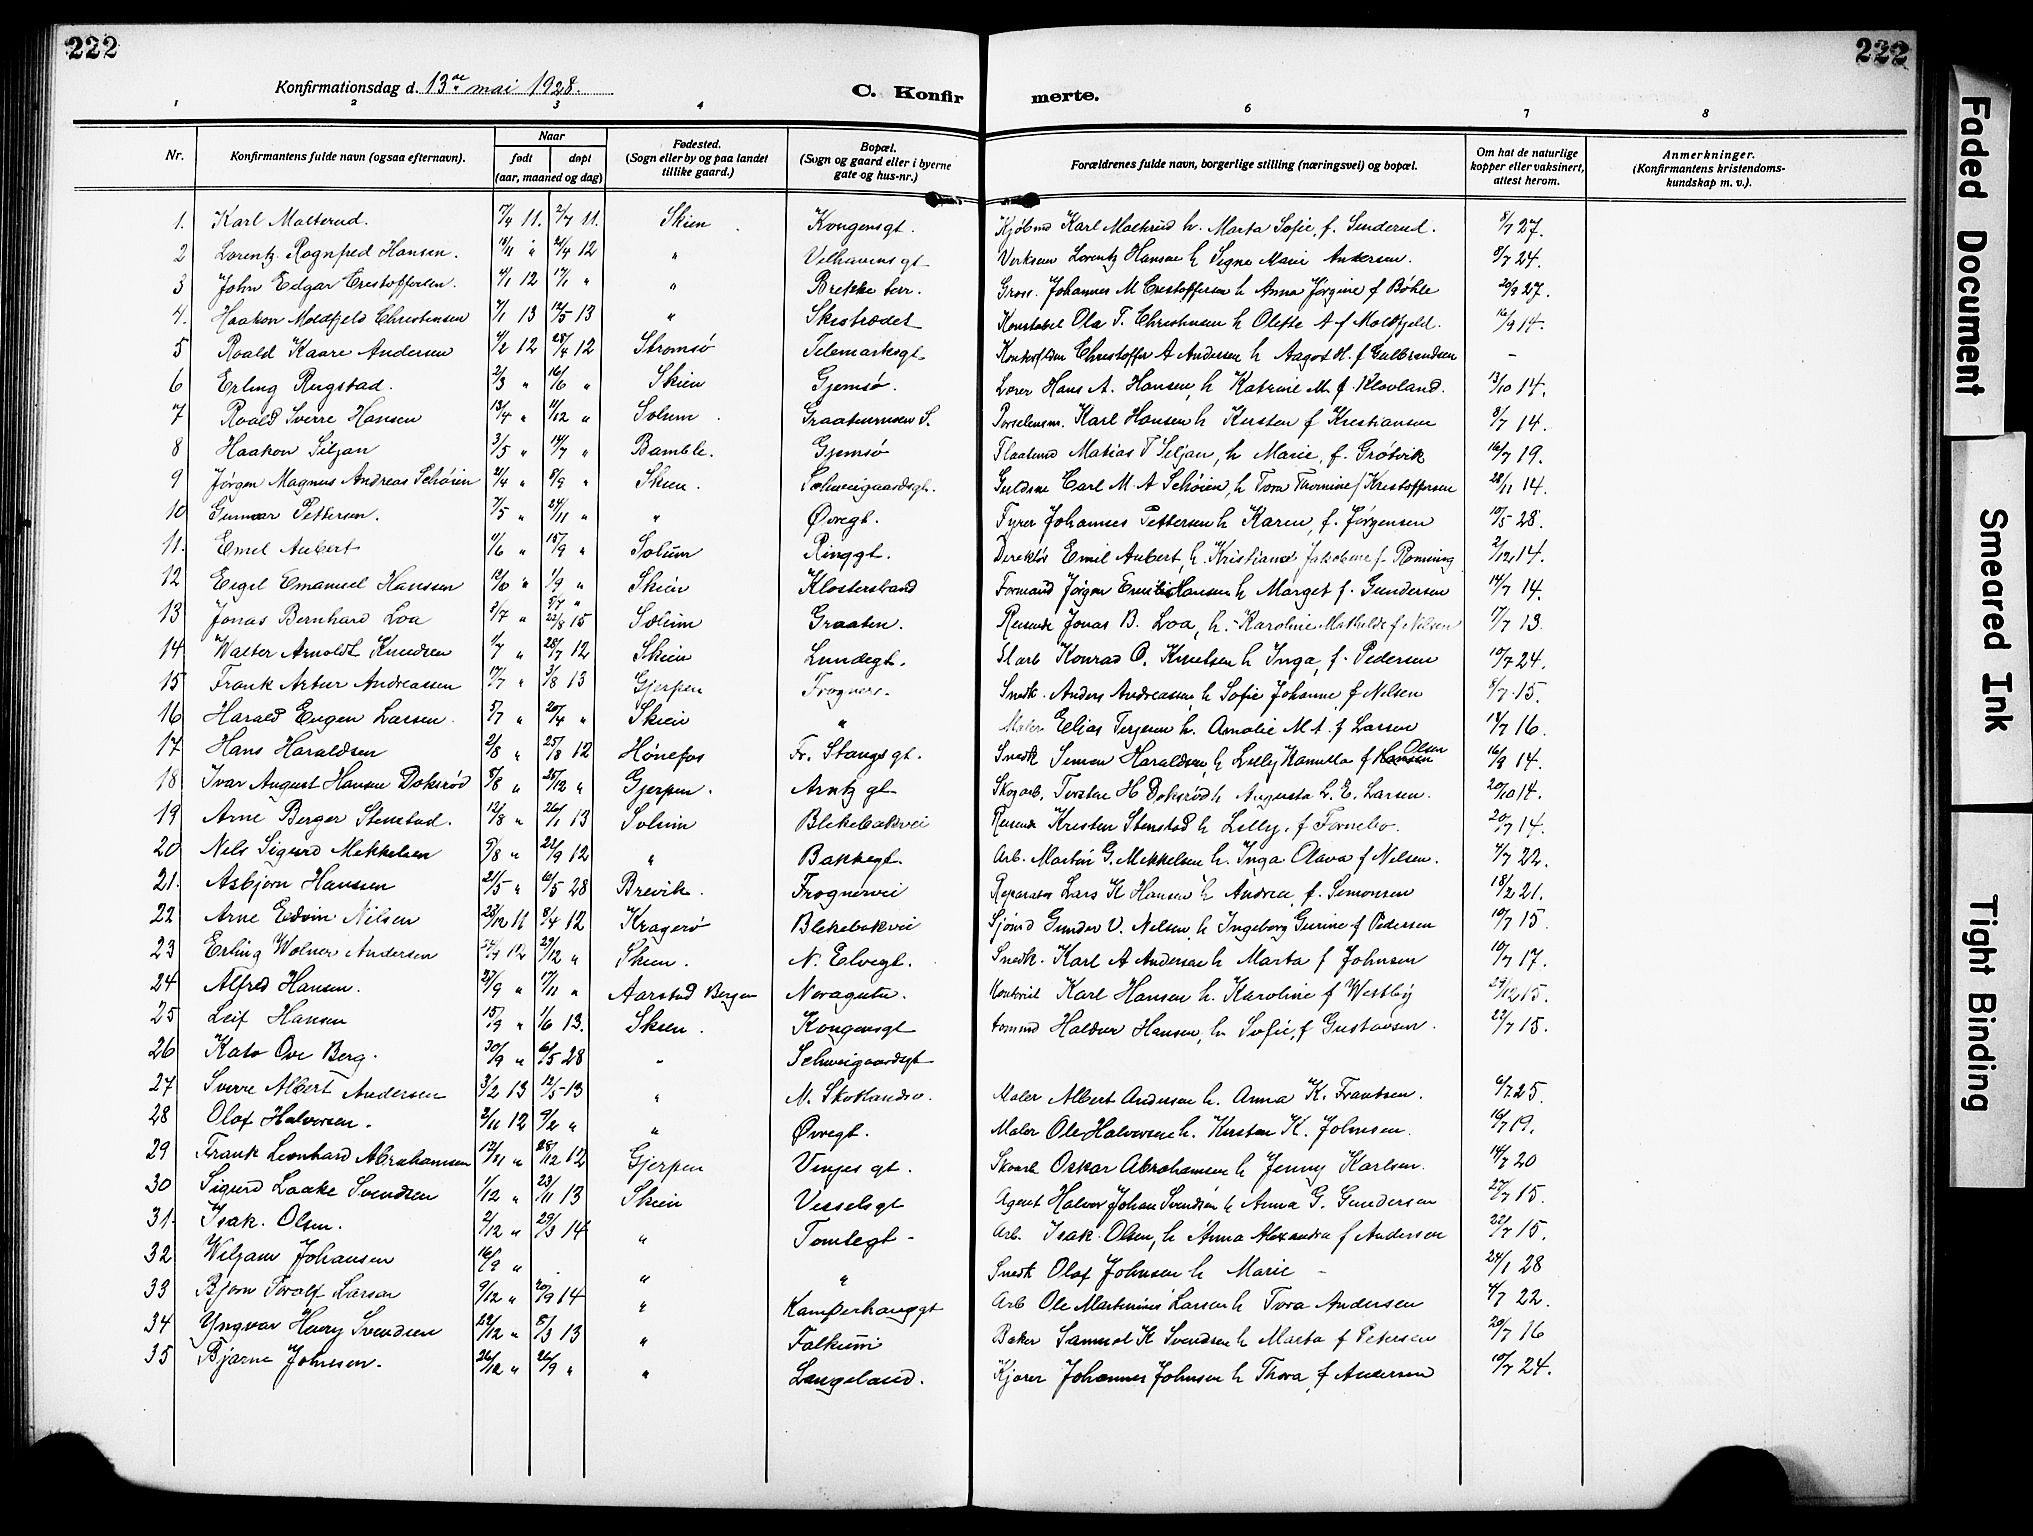 222
222
Konfirmationsdag d. 13de mai 1928.
C. Konfirmerte.
1 2 3 4 5 6 7 8
Nr.
Konfirmantens fulde navn (ogsaa efternavn).
Naar
født døpt
(aar, maaned og dag)
Fødested.
(Sogn eller by og paa landet
tillike gaard.)
Bopæl.
(Sogn og gaard eller i byerne
gate og hus-nr.)
Forældrenes fulde navn, borgerlige stilling (næringsvei) og bopæl.
Om hat de naturlige
kopper eller vaksinert,
attest herom.
Anmerkninger.
(Konfirmantens kristendoms-
kundskap m. v.).
1. Karl Malterud. 7/4 11. 2/7 11. Skien Kongensgt. Kjøbmd Karl Malterud h. Marta Sofie, f. Sunderud. 8/7 27.
2 Lorentz Ragnfred Hansen. 18/11 " 21/4 12 " Velhavens gt Verksem Lorentz Hansen h Signe Marie Andersen. 8/7 24.
3 John Edgar Crestoffersen. 4/1 12 17/1 " " Brekke terr. Gross. Johannes M Crestoffersen h Anna Jørgine f Bøhle 20/9 27.
4. Haakon Moldfjeld Christensen 7/1 13 12/5 13 " Skistrædet Konstabel Ola T. Christensen h Olette A f Moldfjeld. 16/9 14.
5 Roald Kaare Andersen 4/2 12 28/4 12 Strømsø Telemarksgt. Christoffer A Andersen h Aagot H. f Gulbrandsen –
6 Erling Rugstad. 2/3 " 16/6 " Skien Gjemsø. Lærer Hans A. Hansen, h Katrine M. f. Klovland. 13/10 14.
7 Roald Sverre Hansen 13/4 " 11/12 " Solum Graatenmoen S. Porselensm. Karl Hansen h Kirsten f Kristiansen 8/7 14.
8 Haakon Siljan 3/5 " 14/7 " Bamble. Gjemsø Matias T Siljan, h Marie, f. Grøtvik 16/7 19.
9 Jørgen Magnus Andreas Schøien 21/4 " 8/9 " Skien. Schweigaardsgt. Guldsm Carl M. A Schøien, h Tora Thomine f Kristoffersen 28/11 14.
10 Gunnar Pettersen. 7/5 " 24/11 " " Øvregt. Fyrb Johannes Pettersen h Karen, f. Jørgensen 10/5 28.
11. Emil Aubert 4/6 " 15/9 " Solum Ringgt. Direktør Emil Aubert, h. Kristiane Jakobine f. Rønning 2/12 14.
12 Eigil Emanuel Hanssen 12/10 " 1/9 " Skien Klosterstrand Formand Jørgen Emil Hansen h Marget f. Gundersen 14/7 14.
13 Jonas Bernhard Loa 8/7 " 22/8 15 Solum Graaten. Reisende Jonas B. Loa, h. Karoline Mathilde f Nilsen 17/7 13.
14 Walter Arnoldt Knudsen 1/7 " 28/7 12 Skien Lundegt. Konrad O. Knudsen h Inga, f. Pedersen 10/7 24.
15 Frank Artur Andreassen 17/7 " 3/8 13 Gjerpen Frogner. Snedk. Anders Andreassen, h Sofie Johanne f Nilsen 8/7 15.
16 Harald Eugen Larsen. 5/7 " 20/4 " Skien " Maler Elias Terjesen h. Amalie M. A. f Larsen 18/7 16.
17 Hans Haraldsen 2/8 " 25/8 12 Hønefos Fr. Stangs gt. Snedk Simon Haraldsen, h Lilly Kamilla f Hansen Olsen 16/9 14.
18 Ivar August Hansen Doksrød 8/8 " 25/12 " Gjerpen. Arntz gt Skogarb. Torstein H Doksrød h Augusta L. E. Larsen. 20/10 14.
19 Arne Berger Stenstad. 12/8 " 26/1 13 Solum Blekebakvei Reisende Kristen Stenstad h Lilly, f Fornebo. 20/7 14.
20 Nils Sigurd Mikkelsen 9/8 " 22/9 12 " Bakkegt. Arb. Martin G. Mikkelsen h. Inga Olava f Nilsen. 7/7 22.
21. Asbjørn Hansen 21/5 " 6/5 28 Brevik. Frognervei Reparatør Lars K Hansen h Andrea, f. Simonsen 18/2 21.
22 Arne Edvin Nilsen 23/12 11 8/4 12 Kragerø Blekebakvei Sjømd Gunder V. Nilsen, h Ingeborg Gurine f Pedersen 10/7 15.
23 Erling Wolner Andersen 12 29/12 " Skien. N. Elvegt. Snedk. Karl A Andersen h Marta f Johnsen 10/7 17.
24 Alfred Hansen. 27/9 " 17/11 " Aarstad Bergen Noragutu. Karl Hansen h. Karoline f Westby 12 15.
25 Leif Hansen 15/9 " 1/6 13. Skien. Kongensgt Formd Haldor Hansen, h. Sofie, f Gustavsen. 22/7 15.
26 Kato Ove Berg. 30/9 " 6/5 28 " Schweigaardsgt
27 Sverre Albert Andersen 3/2 13 12/5 13 " N. Skotlandsv. Maler Albert Andersen h. Anna K. Frantsen. 6/7 25.
28 Olaf Halvorsen. 2/11 12 9/2 " " Øvregt. Maler Ole Halvorsen h. Kirsten K. Johnsen. 16/7 19.
29 Frank Leonhard Abrahamsen 12/11 " 28/12 12 Gjerpen Vinjes gt. Skoarb Oskar Abrahamsen h Jenny Karlsen. 14/7 20
30 Sigurd Laake Svendsen 1/12 " 23/11 13 Skien Wesselsgt Agent Halvor Johan Svendsen h Anna G. Gundersen 27/7 15.
31. Isak. Olsen. 2/12 " 29/3 14 " Tomtegt - Arb. Isak Olsen, h Anna Alexandra f Andersen 22/7 15.
32 Wiljam Johansen 16/9 " " " Snedk Olaf Johnsen h Marie – 24/1 28
33 Bjørn Torolf Larsen 9/12 " 20/9 14 " Kamperhauggt Arb Ole Martinius Larsen h Tora Andersen 4/7 22.
34 Yngvar Henry Svendsen 22/12 " 8/3 13 " Falkum Baker Samuel K Svendsen h Marta f Petersen 20/7 16
35 Bjarne Johnsen. 26/12 " 26/9 " " Langeland. Kjører Johannes Johnsen h Thora, f Andersen 10/7 24.
Faded Document
Smeared Ink
Tight Binding